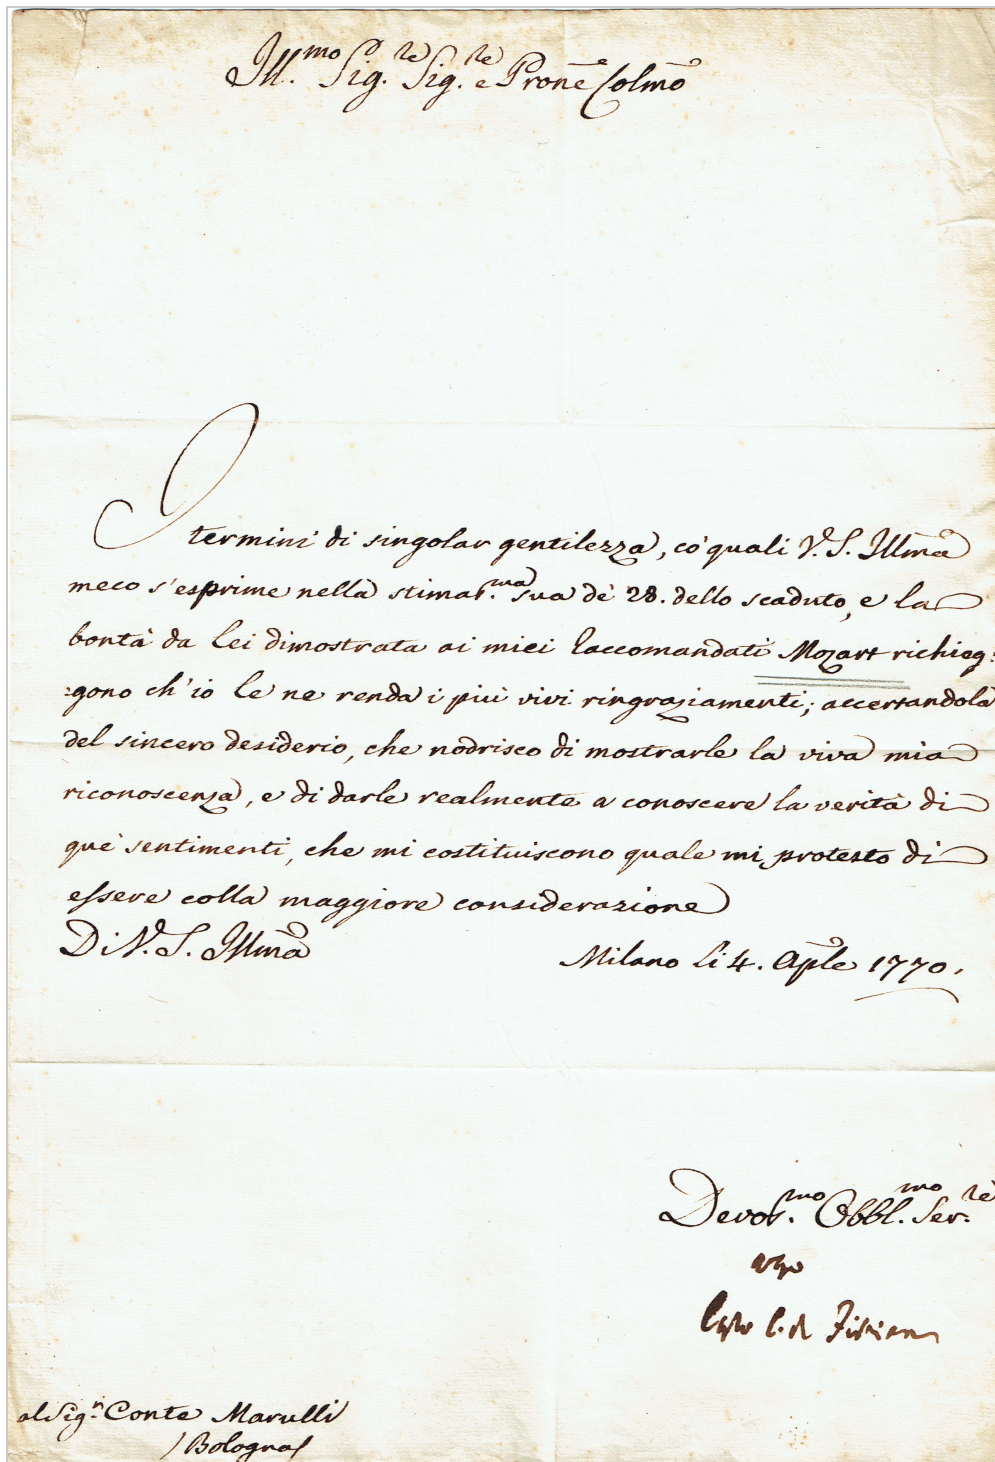 Ill.mo Sig.re Sig.re e Prone Colmo
I termini di singolar gentilezza, co' quali V. S. Illma
meco s'esprime nella stimas.ma sua de' 28. dello scaduto, e la
bontà da Lei dimostrata ai miei Raccomandati Mozart richieg:
:gono ch'io Le ne renda i più vivi ringraziamenti; accertandola
del sincero desiderio, che nodrisco di mostrarle la viva mia
riconoscenza, e di darle realmente a conoscere la verità di
que' sentimenti, che mi costituiscono quale mi protesto di
essere colla maggiore considerazione
Di V. S. Illma
Milano li 4. Aple 1770.
Devos.mo Obbl.mo Ser.re
Carlo C. di Firmian
al Sig.r Conte Marulli
/Bologna/